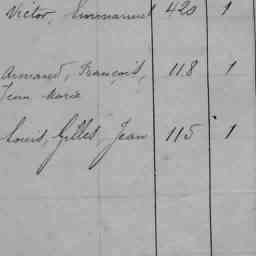 Victor, Emmanuel 420 1
Armand, François, 118 1
Jean Marie
Louis, Gilles, Jean 115 1